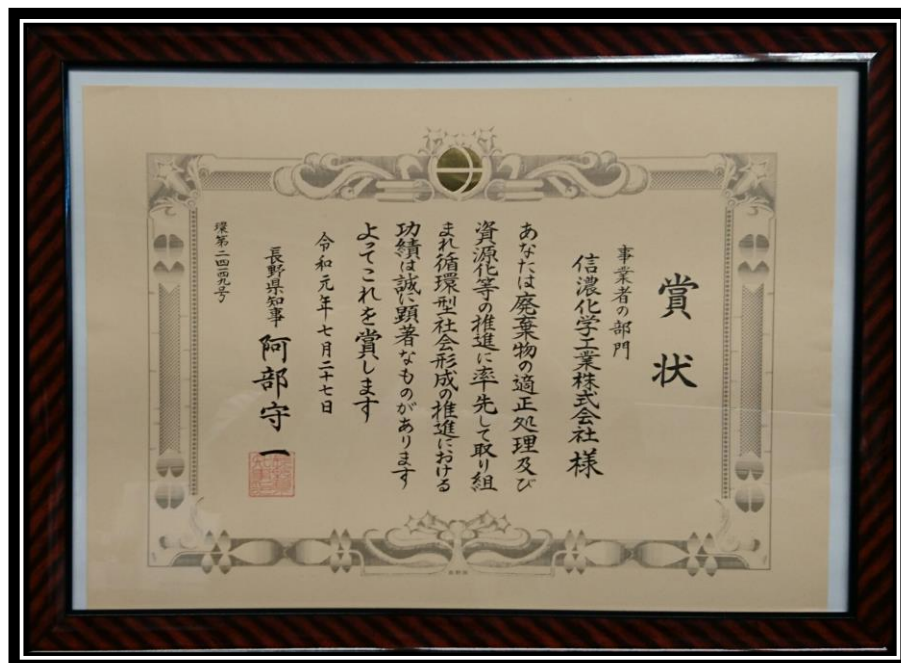 賞状
事業者の部門
信濃化学工業株式会社 様
あなたは廃棄物の適正処理及び
資源化等の推進に率先して取り組
まれ循環型社会形成の推進における
功績は誠に顕著なものがあります
よってこれを賞します
令和元年七月二十七日
長野県知事 阿部守一